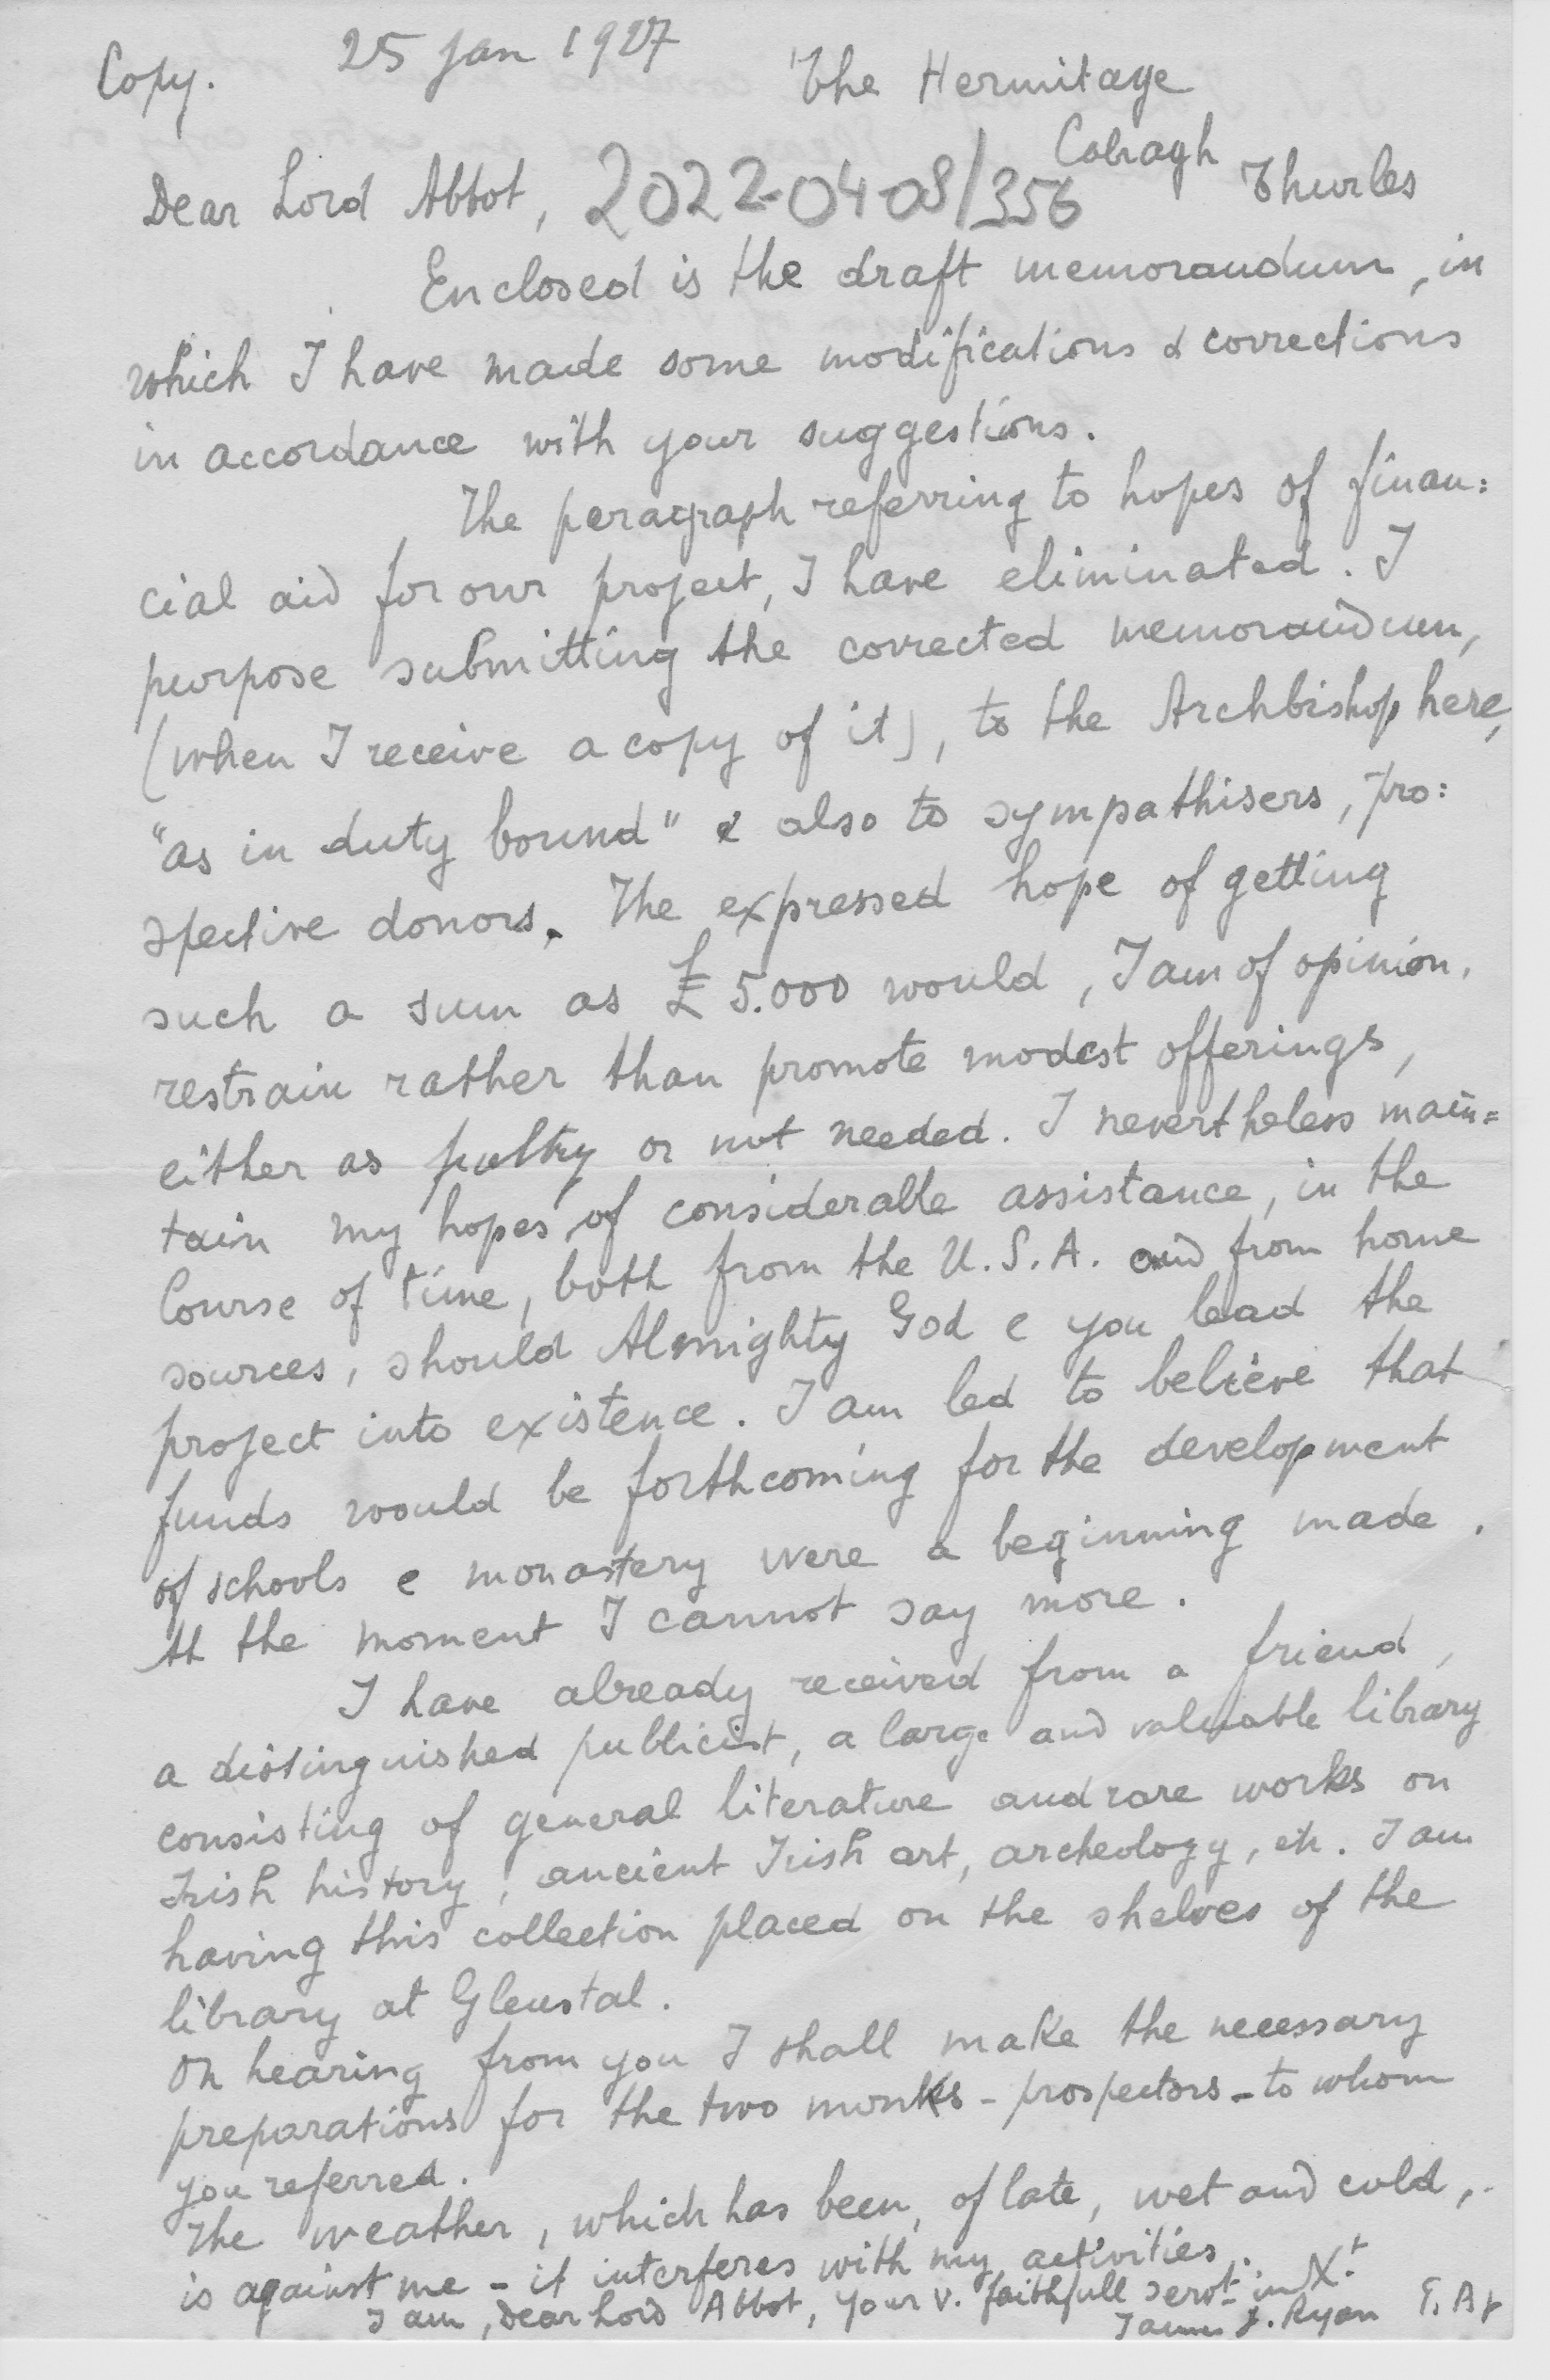 Copy. 25 Jan 1927
The Hermitage
Cabragh Thurles
Dear Lord Abbot, 2022-04-08/356
Enclosed is the draft memorandum, in
which I have made some modifications & corrections
in accordance with your suggestions.
The paragraph referring to hopes of finan:
cial aid for our project, I have eliminated. I
purpose submitting the corrected memorandum,
(when I receive a copy of it), to the Archbishop here,
"as in duty bound" & also to sympathisers, pro:
spective donors. The expressed hope of getting
such a sum as £5.000 would, I am of opinion,
restrain rather than promote modest offerings,
either as paltry or not needed. I nevertheless main=
tain my hopes of considerable assistance, in the
Course of time, both from the U.S.A. and from home
sources, should Almighty God & you lead the
project into existence. I am led to believe that
funds would be forthcoming for the development
of schools & monastery were a beginning made.
At the moment I cannot say more.
I have already received from a friend,
a distinguished publicist, a large and valuable library
consisting of general literature and rare works on
Irish history, ancient Irish art, archeology, etc. I am
having this collection placed on the shelves of the
library at Glenstal.
On hearing from you I shall make the necessary
preparations for the two monks - prospectors - to whom
you referred.
The weather, which has been, of late, wet and cold,
is against me - it interferes with my activities.
I am, Dear Lord Abbot, your v. faithfull servt in Xt
James J. Ryan